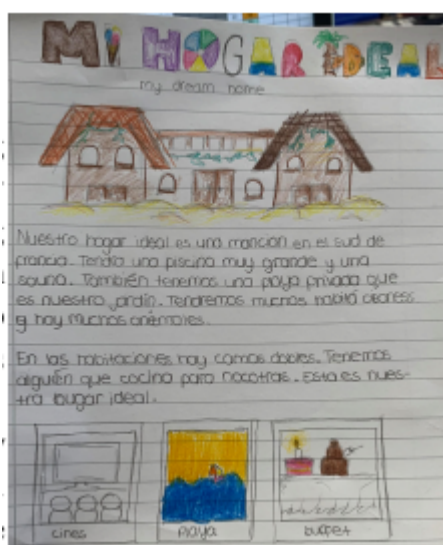 MI HOGAR IDEAL
my dream home
Nuestro hogar ideal es una mancion en el sud de
francia. Tendría una piscina muy grande y una
sauna. También tenemos una playa privada que
es nuestro jardín. Tendremos muchas
y hay muchos
En las habitaciones hay camas dobles. Tenemos
alguién que cocina para nocotras. Esta es nues-
tra lugar ideal.
cines
playa
buffet